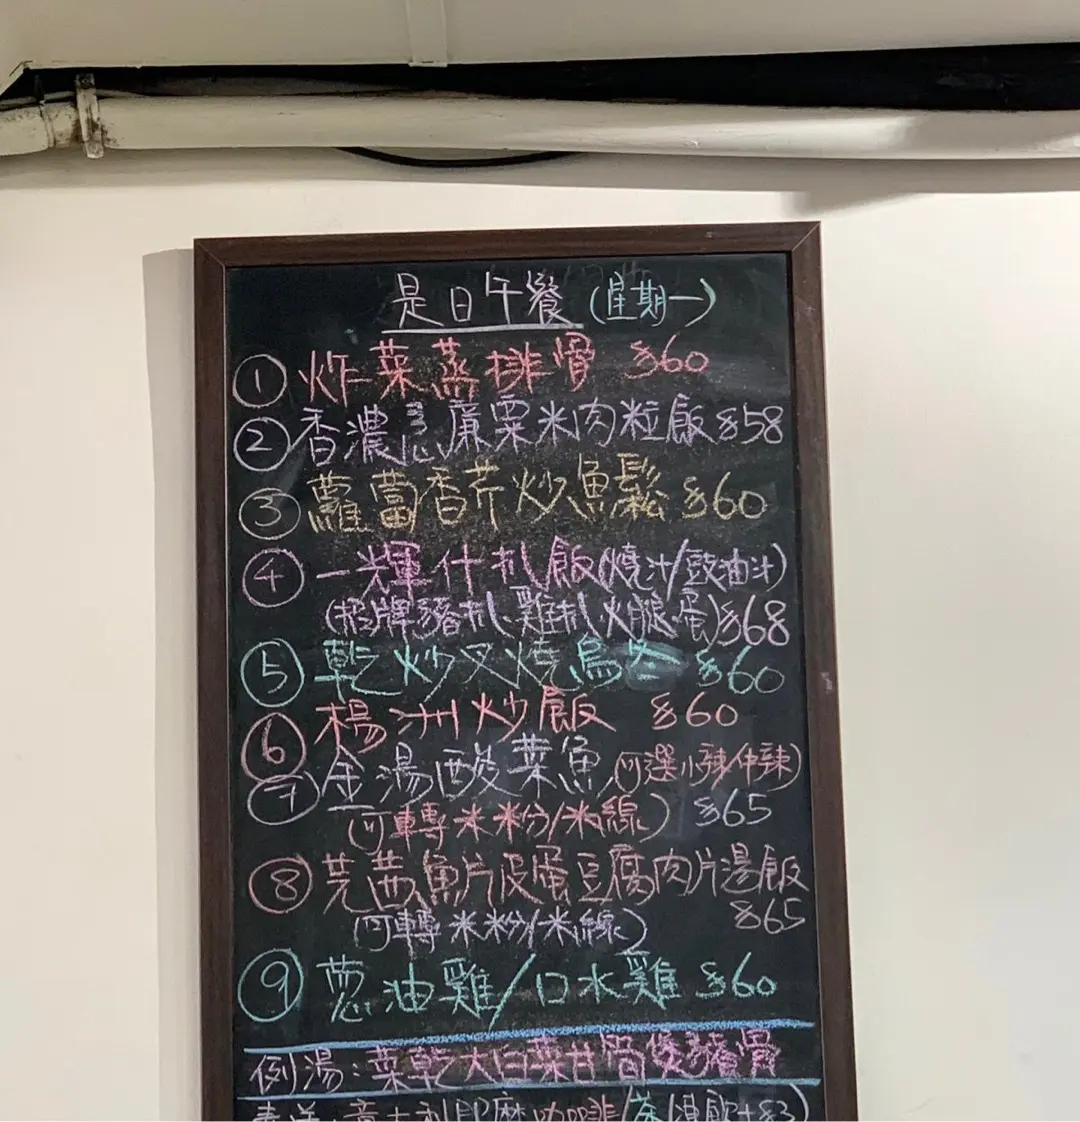 是日午餐(星期一)
① 炸菜蒸排骨 $60
② 香濃忌廉粟米肉粒飯 $58
③ 蘿蔔香芹炒魚鬆 $60
④ 一輝什扒飯(燒汁/豉油汁)
(招牌豬扒.雞扒.火腿.蛋) $68
⑤ 乾炒叉燒烏冬 $60
⑥ 楊洲炒飯 $60
⑦ 金湯酸菜魚(可選小辣/中辣)
(可轉米粉/米線) $65
⑧ 芫茜魚片皮蛋豆腐肉片湯飯
(可轉米粉/米線) $65
⑨ 蔥油雞/口水雞 $60
例湯:菜乾大白菜甘筍煲豬骨
咖啡/茶/凍飲+$3)